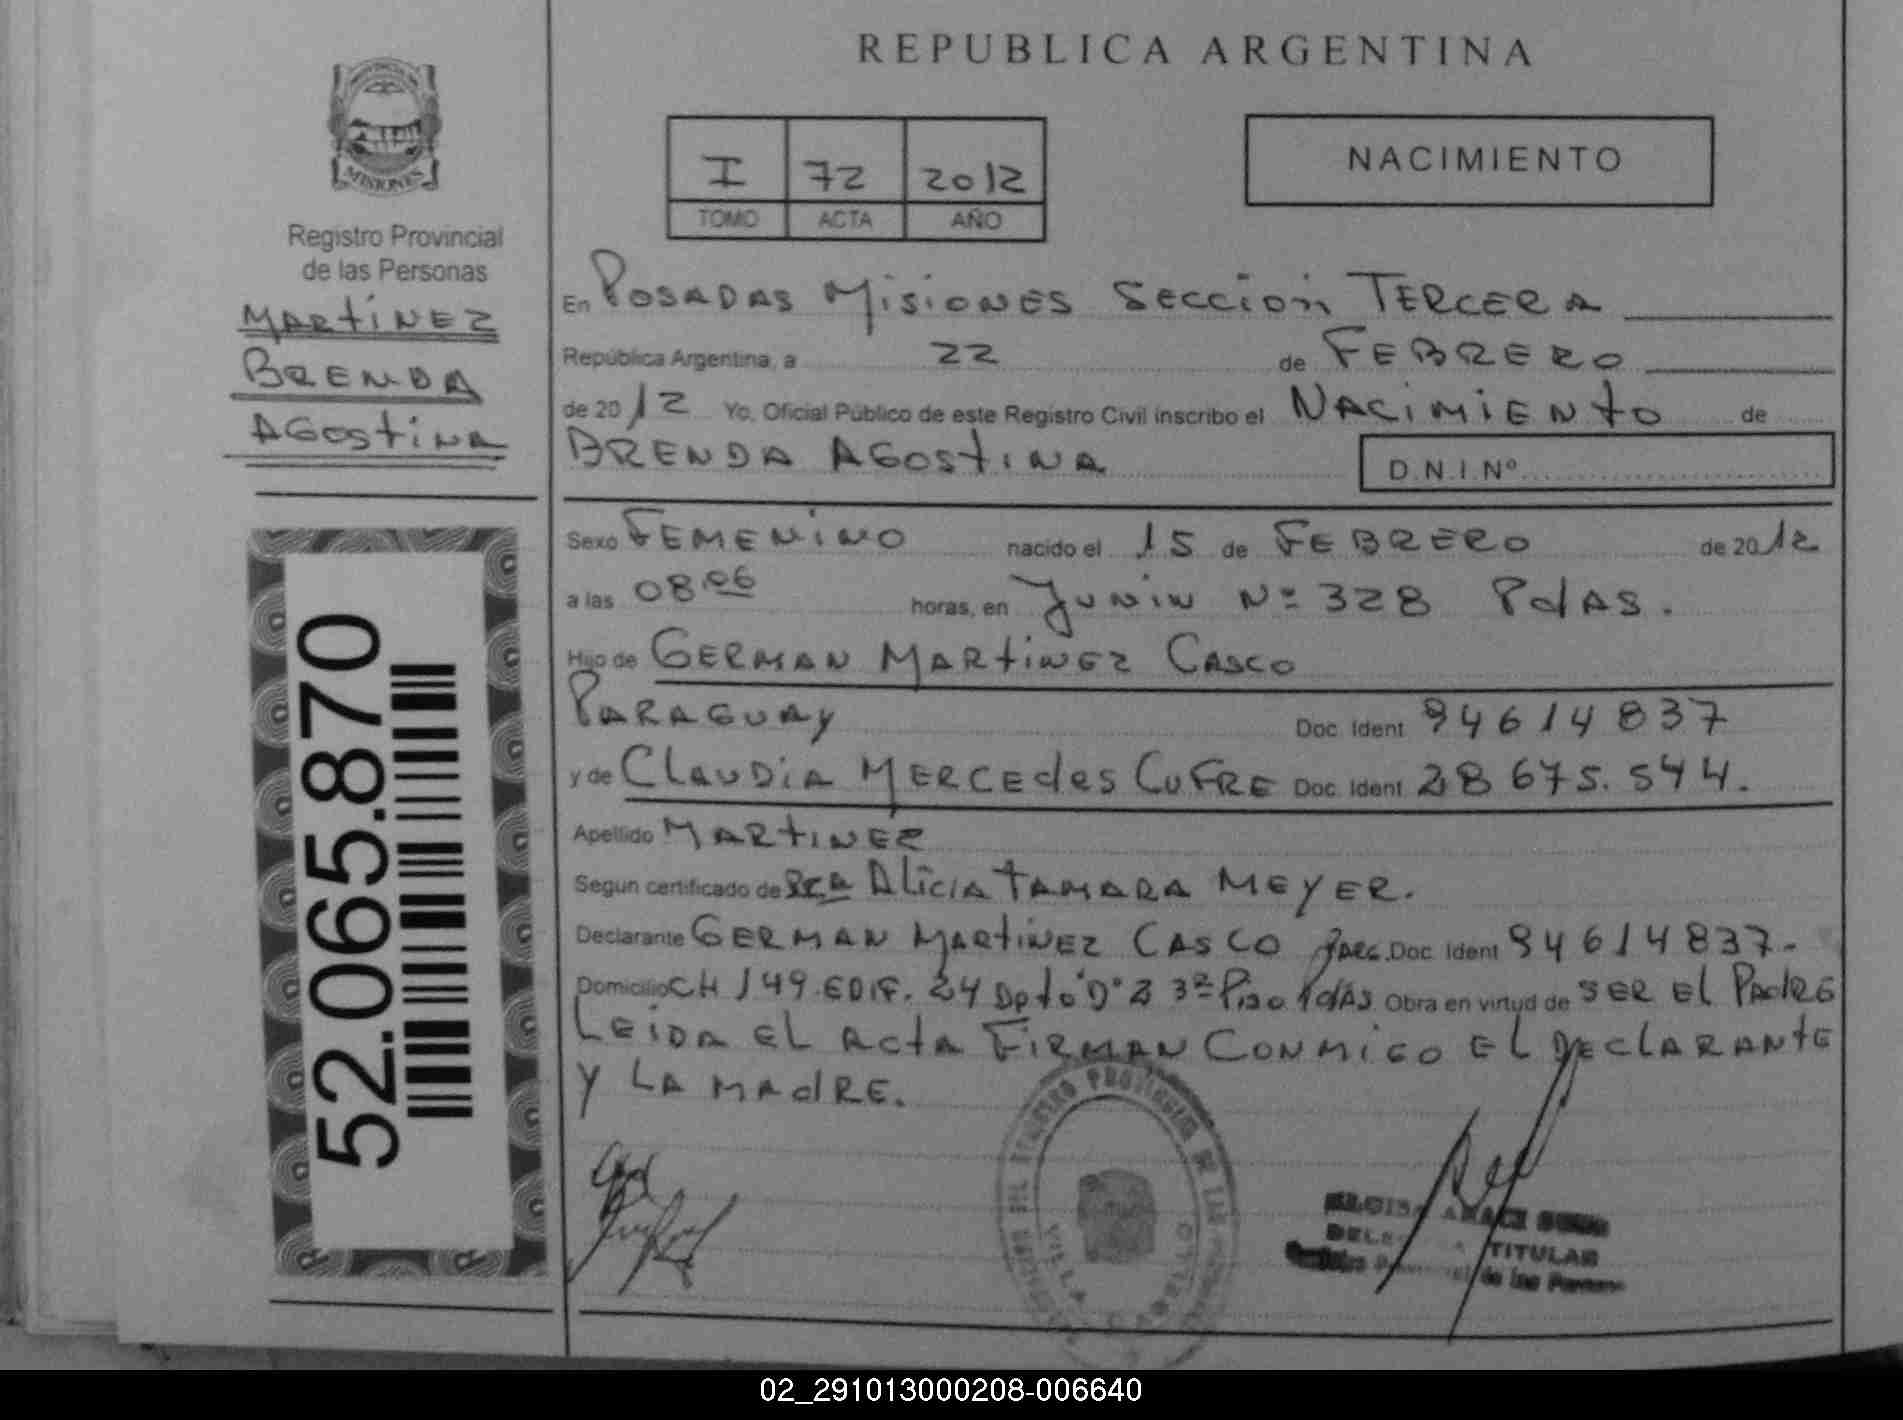 REPUBLICA ARGENTINA
MISIONES
Registro Provincial
de las Personas
MARTÍNEZ
BRENDA
AGOSTINA
52.065.870
I 72 2012
TOMO ACTA AÑO
NACIMIENTO
En POSADAS MISIONES SECCION TERCERA
República Argentina, a 22 de FEBRERO
de 2012 Yo, Oficial Público de este Registro Civil inscribo el NACIMIENTO de
BRENDA AGOSTINA D.N.I.Nº
Sexo FEMENINO nacido el 15 de FEBRERO de 2012
a las 08.06 horas, en JUNIN Nº 328 PdAS.
Hijo de GERMAN MARTINEZ CASCO
PARAGUAY Doc. Ident 94614837
y de CLAUDIA MERCEdes CUFRE Doc. Ident 28675.544.
Apellido MARTINEZ
Segun certificado de ALICIA TAMARA MEYER.
Declarante GERMAN MARTINEZ CASCO PARG. Doc. Ident 94614837-
Domicilio CH 149-EDIF. 24 Dpto "D" 3º Piso PdAS Obra en virtud de SER EL PADRE
LEIDA EL ACTA FIRMAN CONMIGO EL DECLARANTE
Y LA MADRE.
TITULAR
de las Personas
VILLA CABELLO
02_291013000208-006640